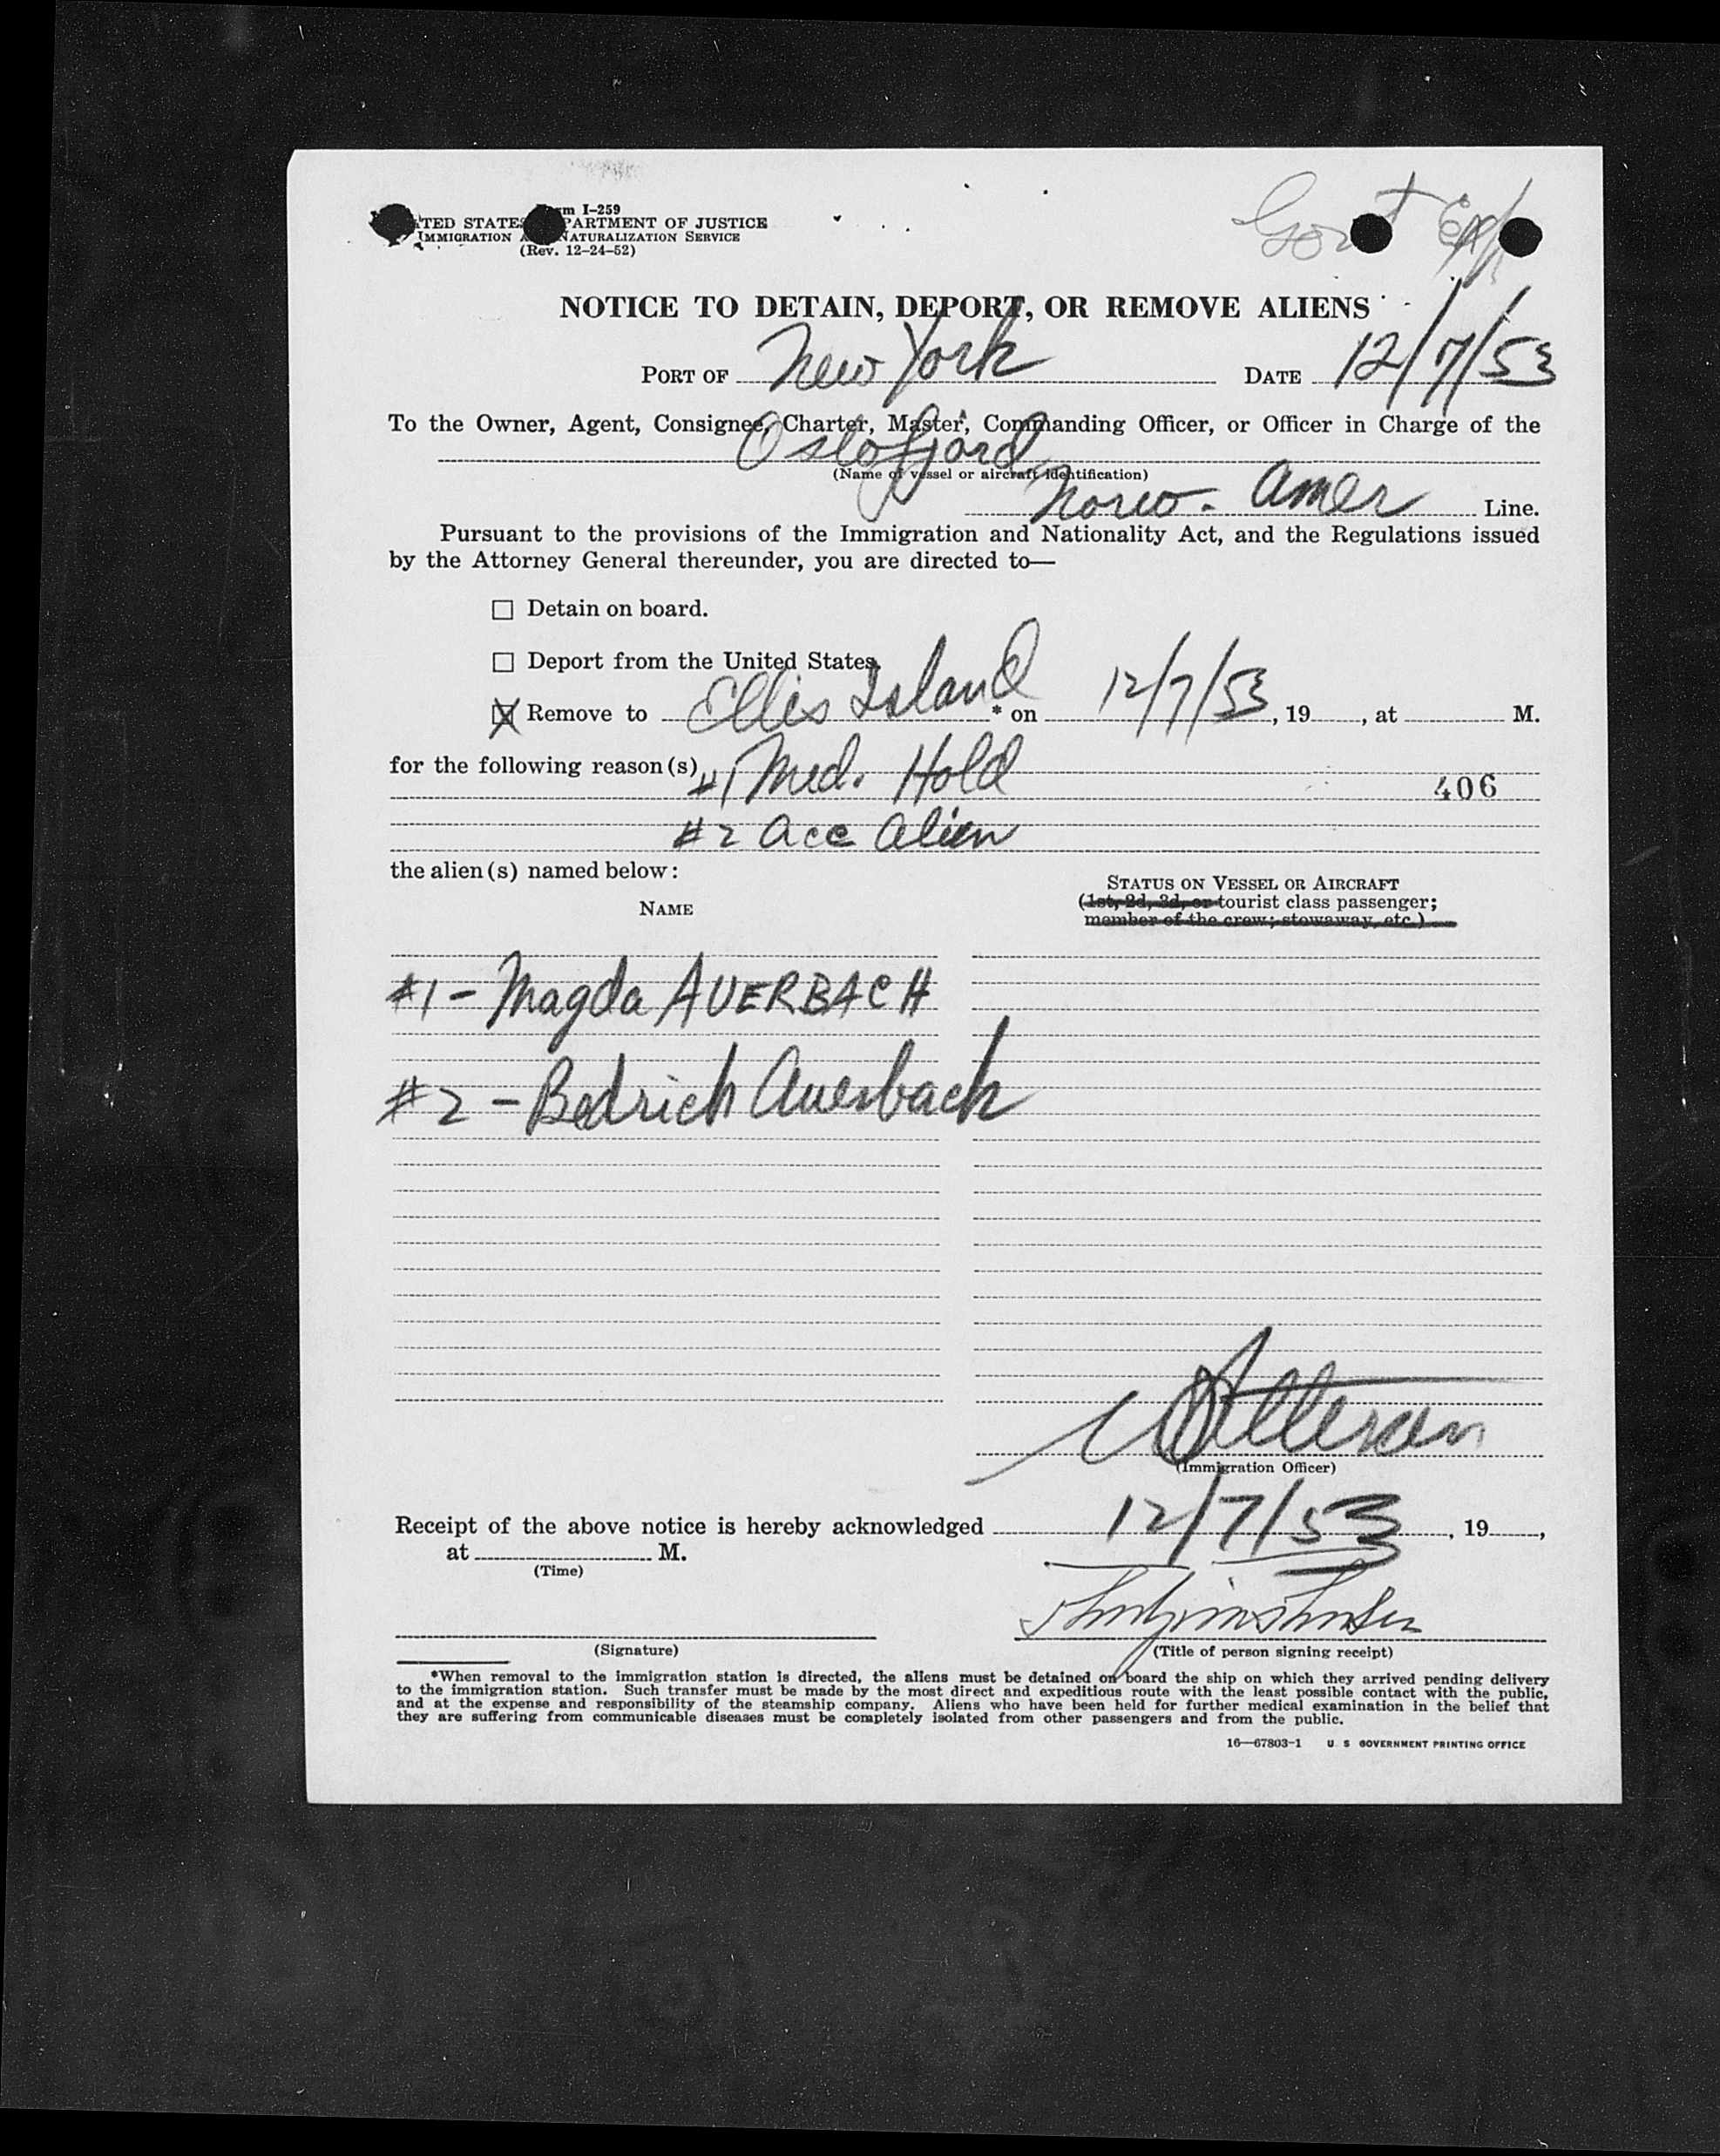 Form I-259
UNITED STATES DEPARTMENT OF JUSTICE
IMMIGRATION AND NATURALIZATION SERVICE
(Rev. 12-24-52)
Govt Exp
NOTICE TO DETAIN, DEPORT, OR REMOVE ALIENS
PORT OF New York DATE 12/7/53
To the Owner, Agent, Consignee, Charter, Master, Commanding Officer, or Officer in Charge of the
Oslofjord
(Name of vessel or aircraft identification)
Norw. Amer Line.
Pursuant to the provisions of the Immigration and Nationality Act, and the Regulations issued
by the Attorney General thereunder, you are directed to—
☐ Detain on board.
☐ Deport from the United States.
☒ Remove to Ellis Island * on 12/7/53, 19, at M.
for the following reason(s) #1 Med. Hold
406
#2 Acc Alien
the alien(s) named below:
NAME
STATUS ON VESSEL OR AIRCRAFT
(1st, 2d, 3d, or tourist class passenger;
member of the crew; stowaway, etc.)
#1 - Magda AUERBACH
#2 - Bedrich Auerbach
(Immigration Officer)
Receipt of the above notice is hereby acknowledged 12/7/53, 19,
at M.
(Time)
(Signature)
(Title of person signing receipt)
*When removal to the immigration station is directed, the aliens must be detained on board the ship on which they arrived pending delivery
to the immigration station. Such transfer must be made by the most direct and expeditious route with the least possible contact with the public,
and at the expense and responsibility of the steamship company. Aliens who have been held for further medical examination in the belief that
they are suffering from communicable diseases must be completely isolated from other passengers and from the public.
16—67803-1 U. S. GOVERNMENT PRINTING OFFICE